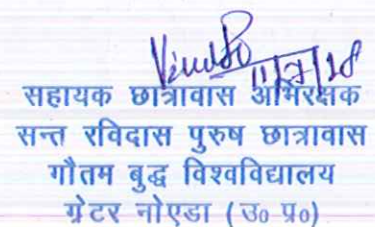 11/7/18
सहायक छात्रावास अभिरक्षक
सन्त रविदास पुरुष छात्रावास
गौतम बुद्ध विश्वविद्यालय
ग्रेटर नोएडा (उ० प्र०)